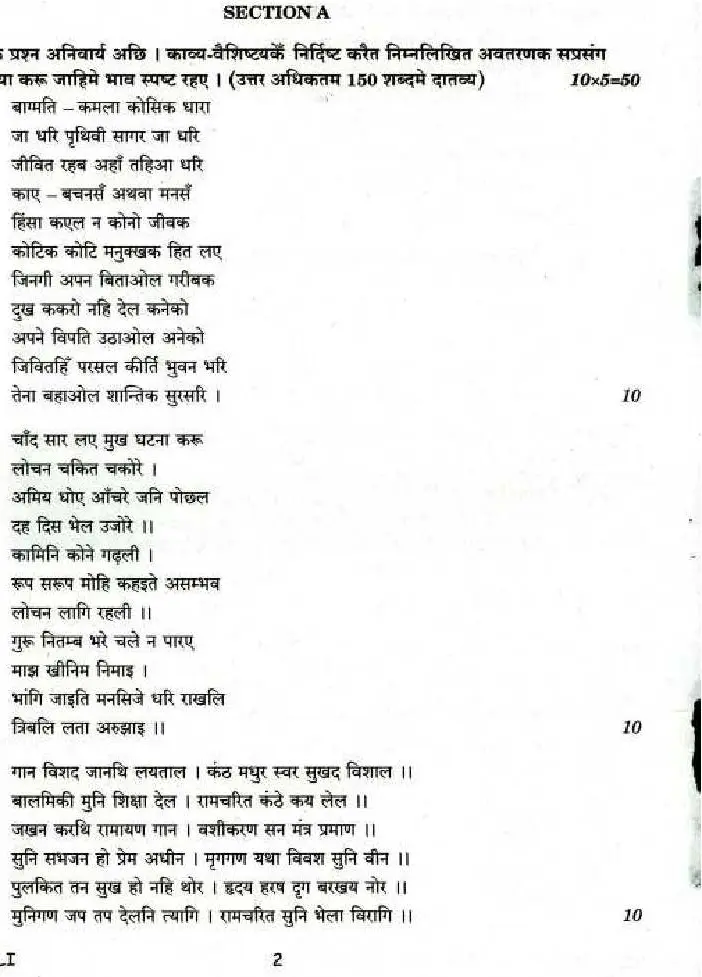 SECTION A
प्रश्न अनिवार्य अछि । काव्य-वैशिष्ट्यकेँ निर्दिष्ट करैत निम्नलिखित अवतरणक सप्रसंग
करू जाहिमे भाव स्पष्ट रहए । (उत्तर अधिकतम 150 शब्दमे दातव्य) 10×5=50
बाग्मति – कमला कोसिक धारा
जा धरि पृथिवी सागर जा धरि
जीवित रहब अहाँ तहिआ धरि
काए – बचनसँ अथवा मनसँ
हिंसा कएल न कोनो जीवक
कोटिक कोटि मनुक्खक हित लए
जिनगी अपन बिताओल गरीबक
दुख ककरो नहि देल कनेको
अपने विपति उठाओल अनेको
जिवितहिँ परसल कीर्ति भुवन भरि
तेना बहाओल शान्तिक सुरसरि । 10
चाँद सार लए मुख घटना करू
लोचन चकित चकोरे ।
अमिय धोए आँचरे जनि पोछल
दह दिस भेल उजोरे ।।
कामिनि कोने गढ़ली ।
रूप सरूप मोहि कहइते असम्भव
लोचन लागि रहली ।।
गुरू नितम्ब भरे चले न पारए
माझ खीनिम निमाइ ।
भांगि जाइति मनसिजे धरि राखलि
त्रिबलि लता अरुझाइ ।। 10
गान विशद जानथि लयताल । कंठ मधुर स्वर सुखद विशाल ।।
बालमिकी मुनि शिक्षा देल । रामचरित कंठे कय लेल ।।
जखन करथि रामायण गान । वशीकरण सन मंत्र प्रमाण ।।
सुनि सभजन हो प्रेम अधीन । मृगगण यथा विवश सुनि वीन ।।
पुलकित तन सुख हो नहि थोर । हृदय हरष दृग बरखय नोर ।।
मुनिगण जप तप देलनि त्यागि । रामचरित सुनि भेला विरागि ।। 10
LI 2